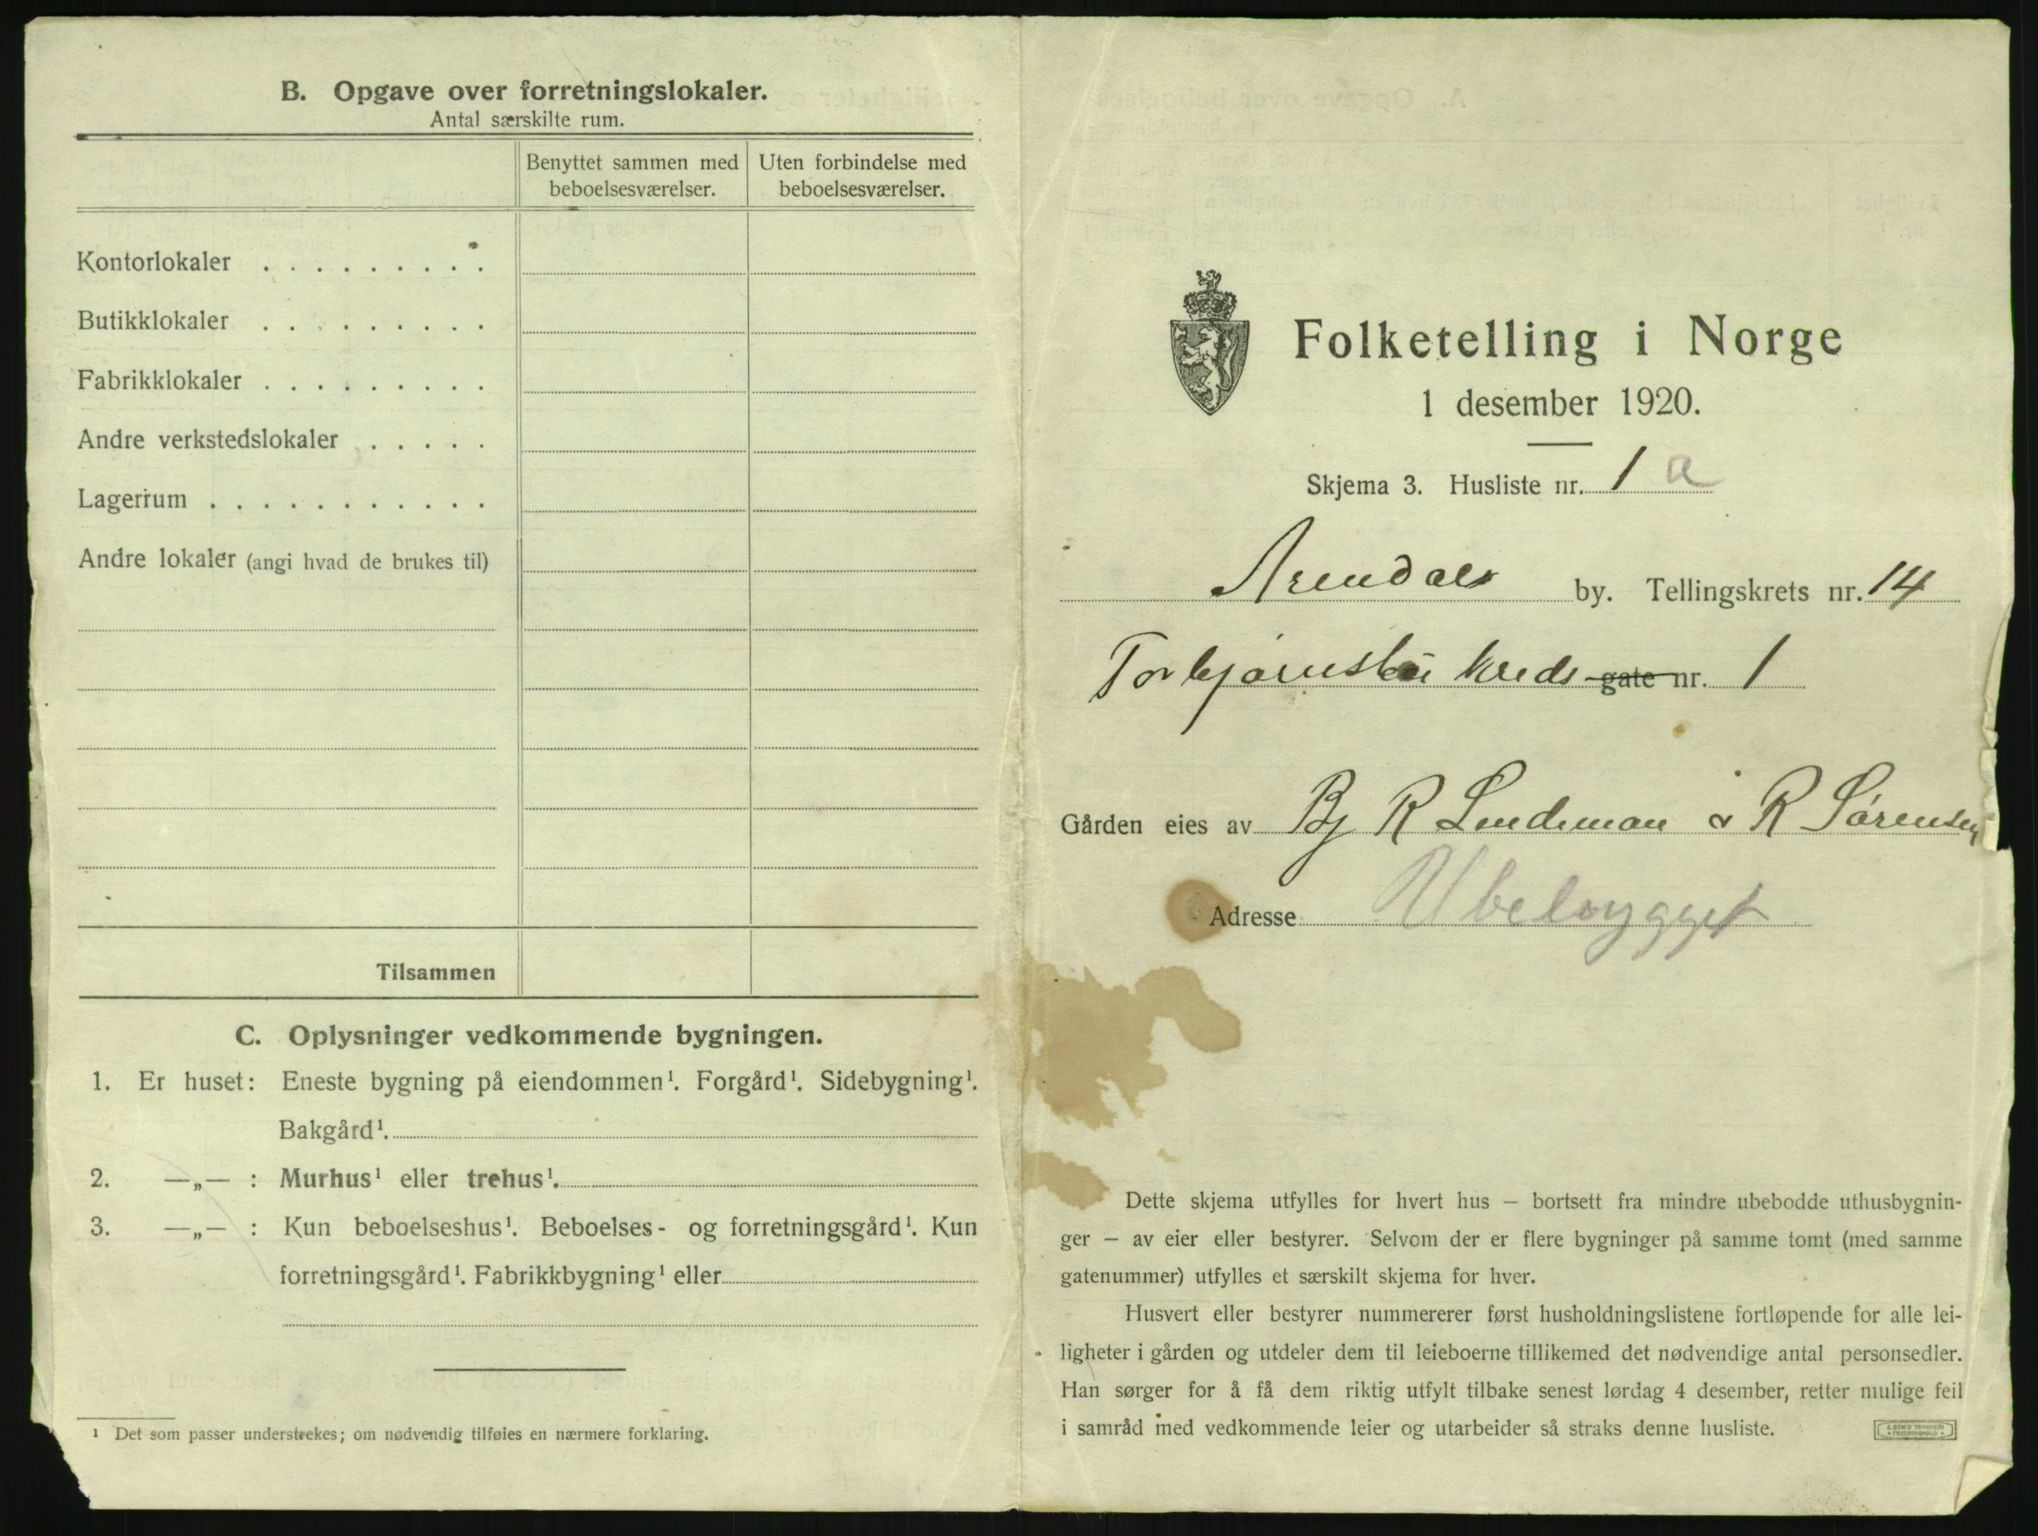 B. Opgave over forretningslokaler.
Antal særskilte rum.
Benyttet sammen med beboelsesværelser.
Uten forbindelse med beboelsesværelser.
Kontorlokaler . . . . . . . . .
Butikklokaler . . . . . . . . .
Fabrikklokaler . . . . . . . . .
Andre verkstedslokaler . . . . .
Lagerrum . . . . . . . . . . .
Andre lokaler (angi hvad de brukes til)
Tilsammen
C. Oplysninger vedkommende bygningen.
1. Er huset: Eneste bygning på eiendommen¹. Forgård¹. Sidebygning¹.
Bakgård¹.
2. —„— : Murhus¹ eller trehus¹.
3. —„— : Kun beboelseshus¹. Beboelses- og forretningsgård¹. Kun
forretningsgård¹. Fabrikkbygning¹ eller
¹ Det som passer understrekes; om nødvendig tilføies en nærmere forklaring.
Folketelling i Norge
1 desember 1920.
Skjema 3. Husliste nr. 1 a
Arendals by. Tellingskrets nr. 14
kreds gate nr. 1
Gården eies av Bj R Lindeman & R Sørensen
Adresse Ubebygget
Dette skjema utfylles for hvert hus – bortsett fra mindre ubebodde uthusbygnin-
ger – av eier eller bestyrer. Selvom der er flere bygninger på samme tomt (med samme
gatenummer) utfylles et særskilt skjema for hver.
Husvert eller bestyrer nummererer først husholdningslistene fortløpende for alle lei-
ligheter i gården og utdeler dem til leieboerne tillikemed det nødvendige antal personsedler.
Han sørger for å få dem riktig utfylt tilbake senest lørdag 4 desember, retter mulige feil
i samråd med vedkommende leier og utarbeider så straks denne husliste.